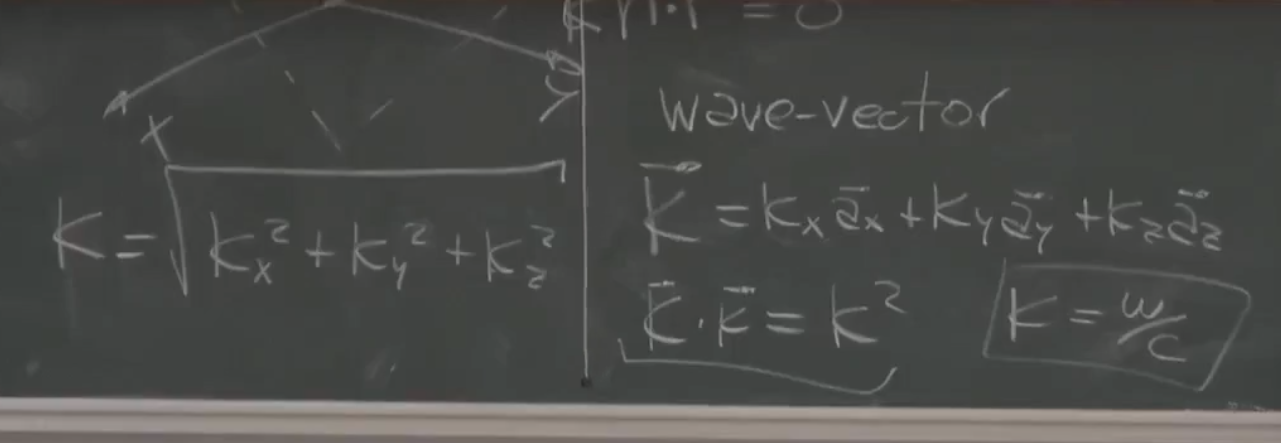 = 0
x
y
K = √(Kx² + Ky² + Kz²)
wave-vector
K⃗ = Kx a⃗x + Ky a⃗y + Kz a⃗z
K⃗ · K⃗ = K²
K = ω/c